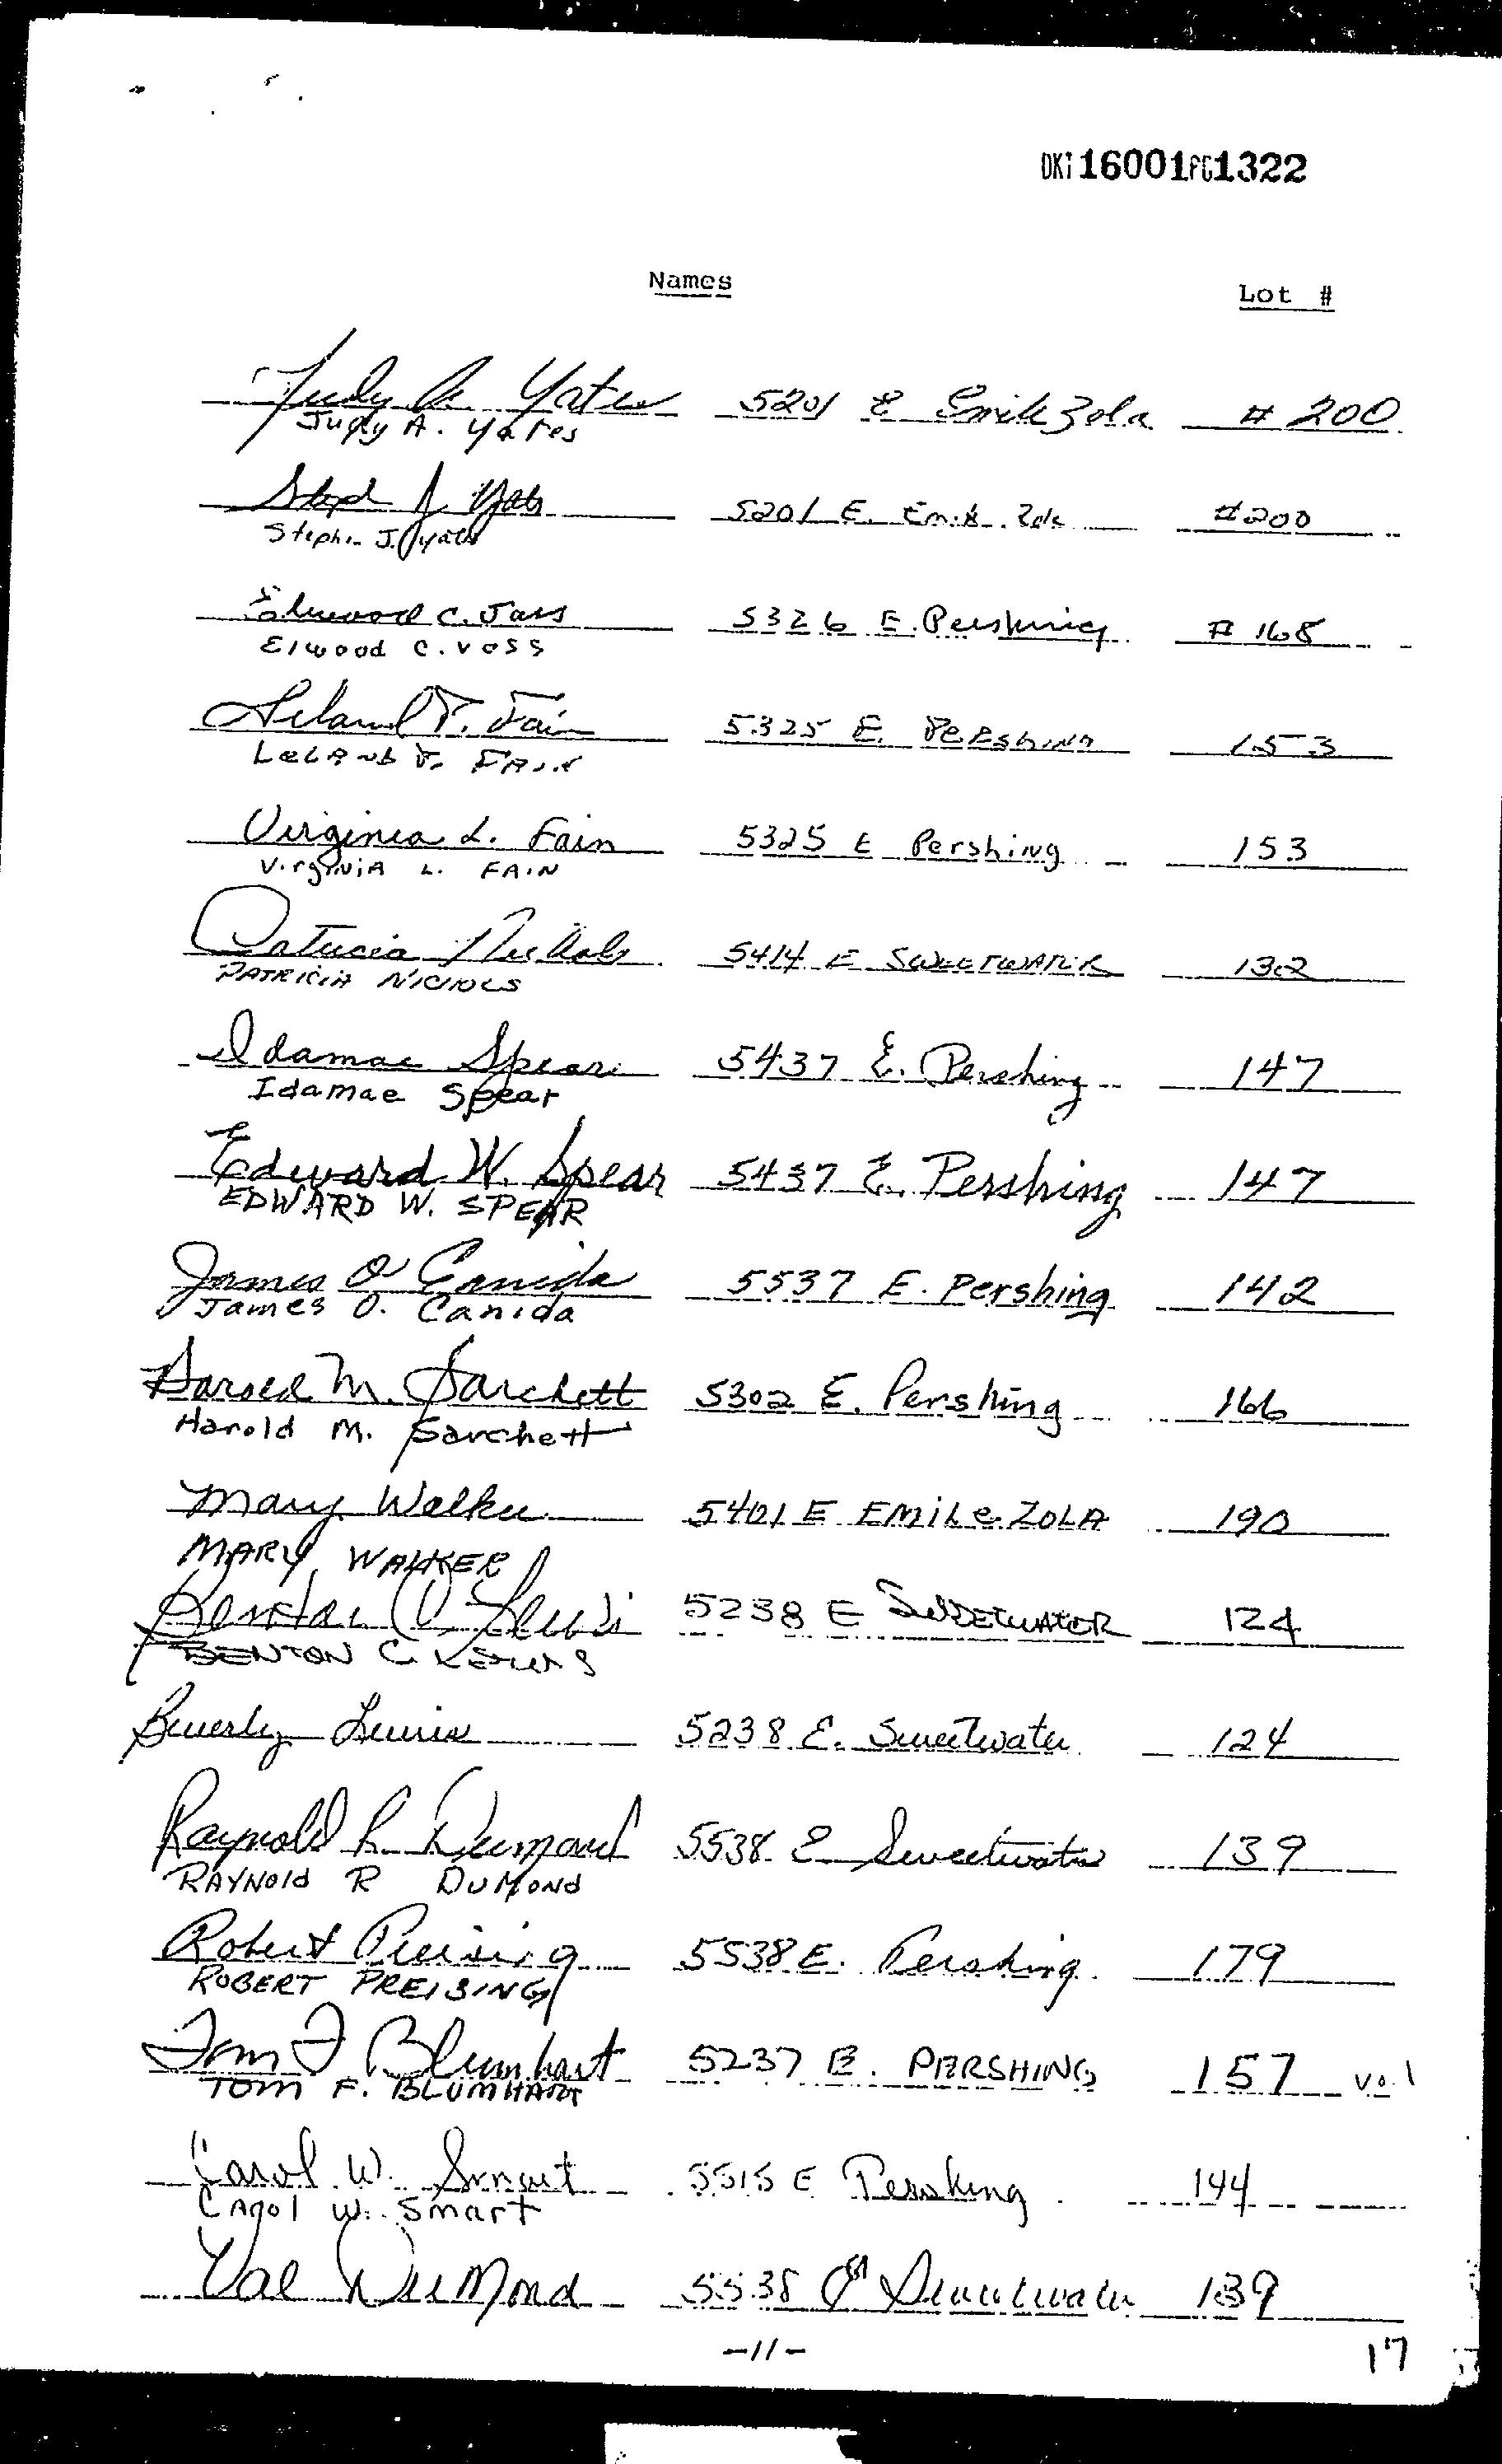 DKT 16001 PG 1322
Names Lot #
Judy A. Yates 5201 E Emile Zola # 200
Judy A. Yates
Steph J Yates 5201 E. Emile Zola #200
Stephen J. Yates
Elwood C. Voss 5326 E. Pershing # 168
Elwood C. Voss
Leland T. Fain 5325 E. Pershing 153
Leland T. Fain
Virginia L. Fain 5325 E Pershing 153
Virginia L. Fain
Patricia Nichols 5414 E Sweetwater 132
PATRICIA NICHOLS
Idamae Spear 5437 E. Pershing 147
Idamae Spear
Edward W. Spear 5437 E. Pershing 147
EDWARD W. SPEAR
James O Canida 5537 E. Pershing 142
James O. Canida
Harold M. Sarchett 5302 E. Pershing 166
Harold M. Sarchett
Mary Walker 5401 E EMILE ZOLA 190
MARY WALKER
Benton C Lewis 5238 E SWEETWATER 124
BENTON C. LEWIS
Beverly Lewis 5238 E. Sweetwater 124
Raynold R. Dumond 5538 E Sweetwater 139
RAYNOLD R DUMOND
Robert Preising 5538 E. Pershing 179
ROBERT PREISING
Tom F Blumhart 5237 E. PERSHING 157
TOM F. BLUMHART
Carol W. Smart 5515 E Pershing 144
Carol W. Smart
Val DuMond 5538 E Sweetwater 139
-11-
17